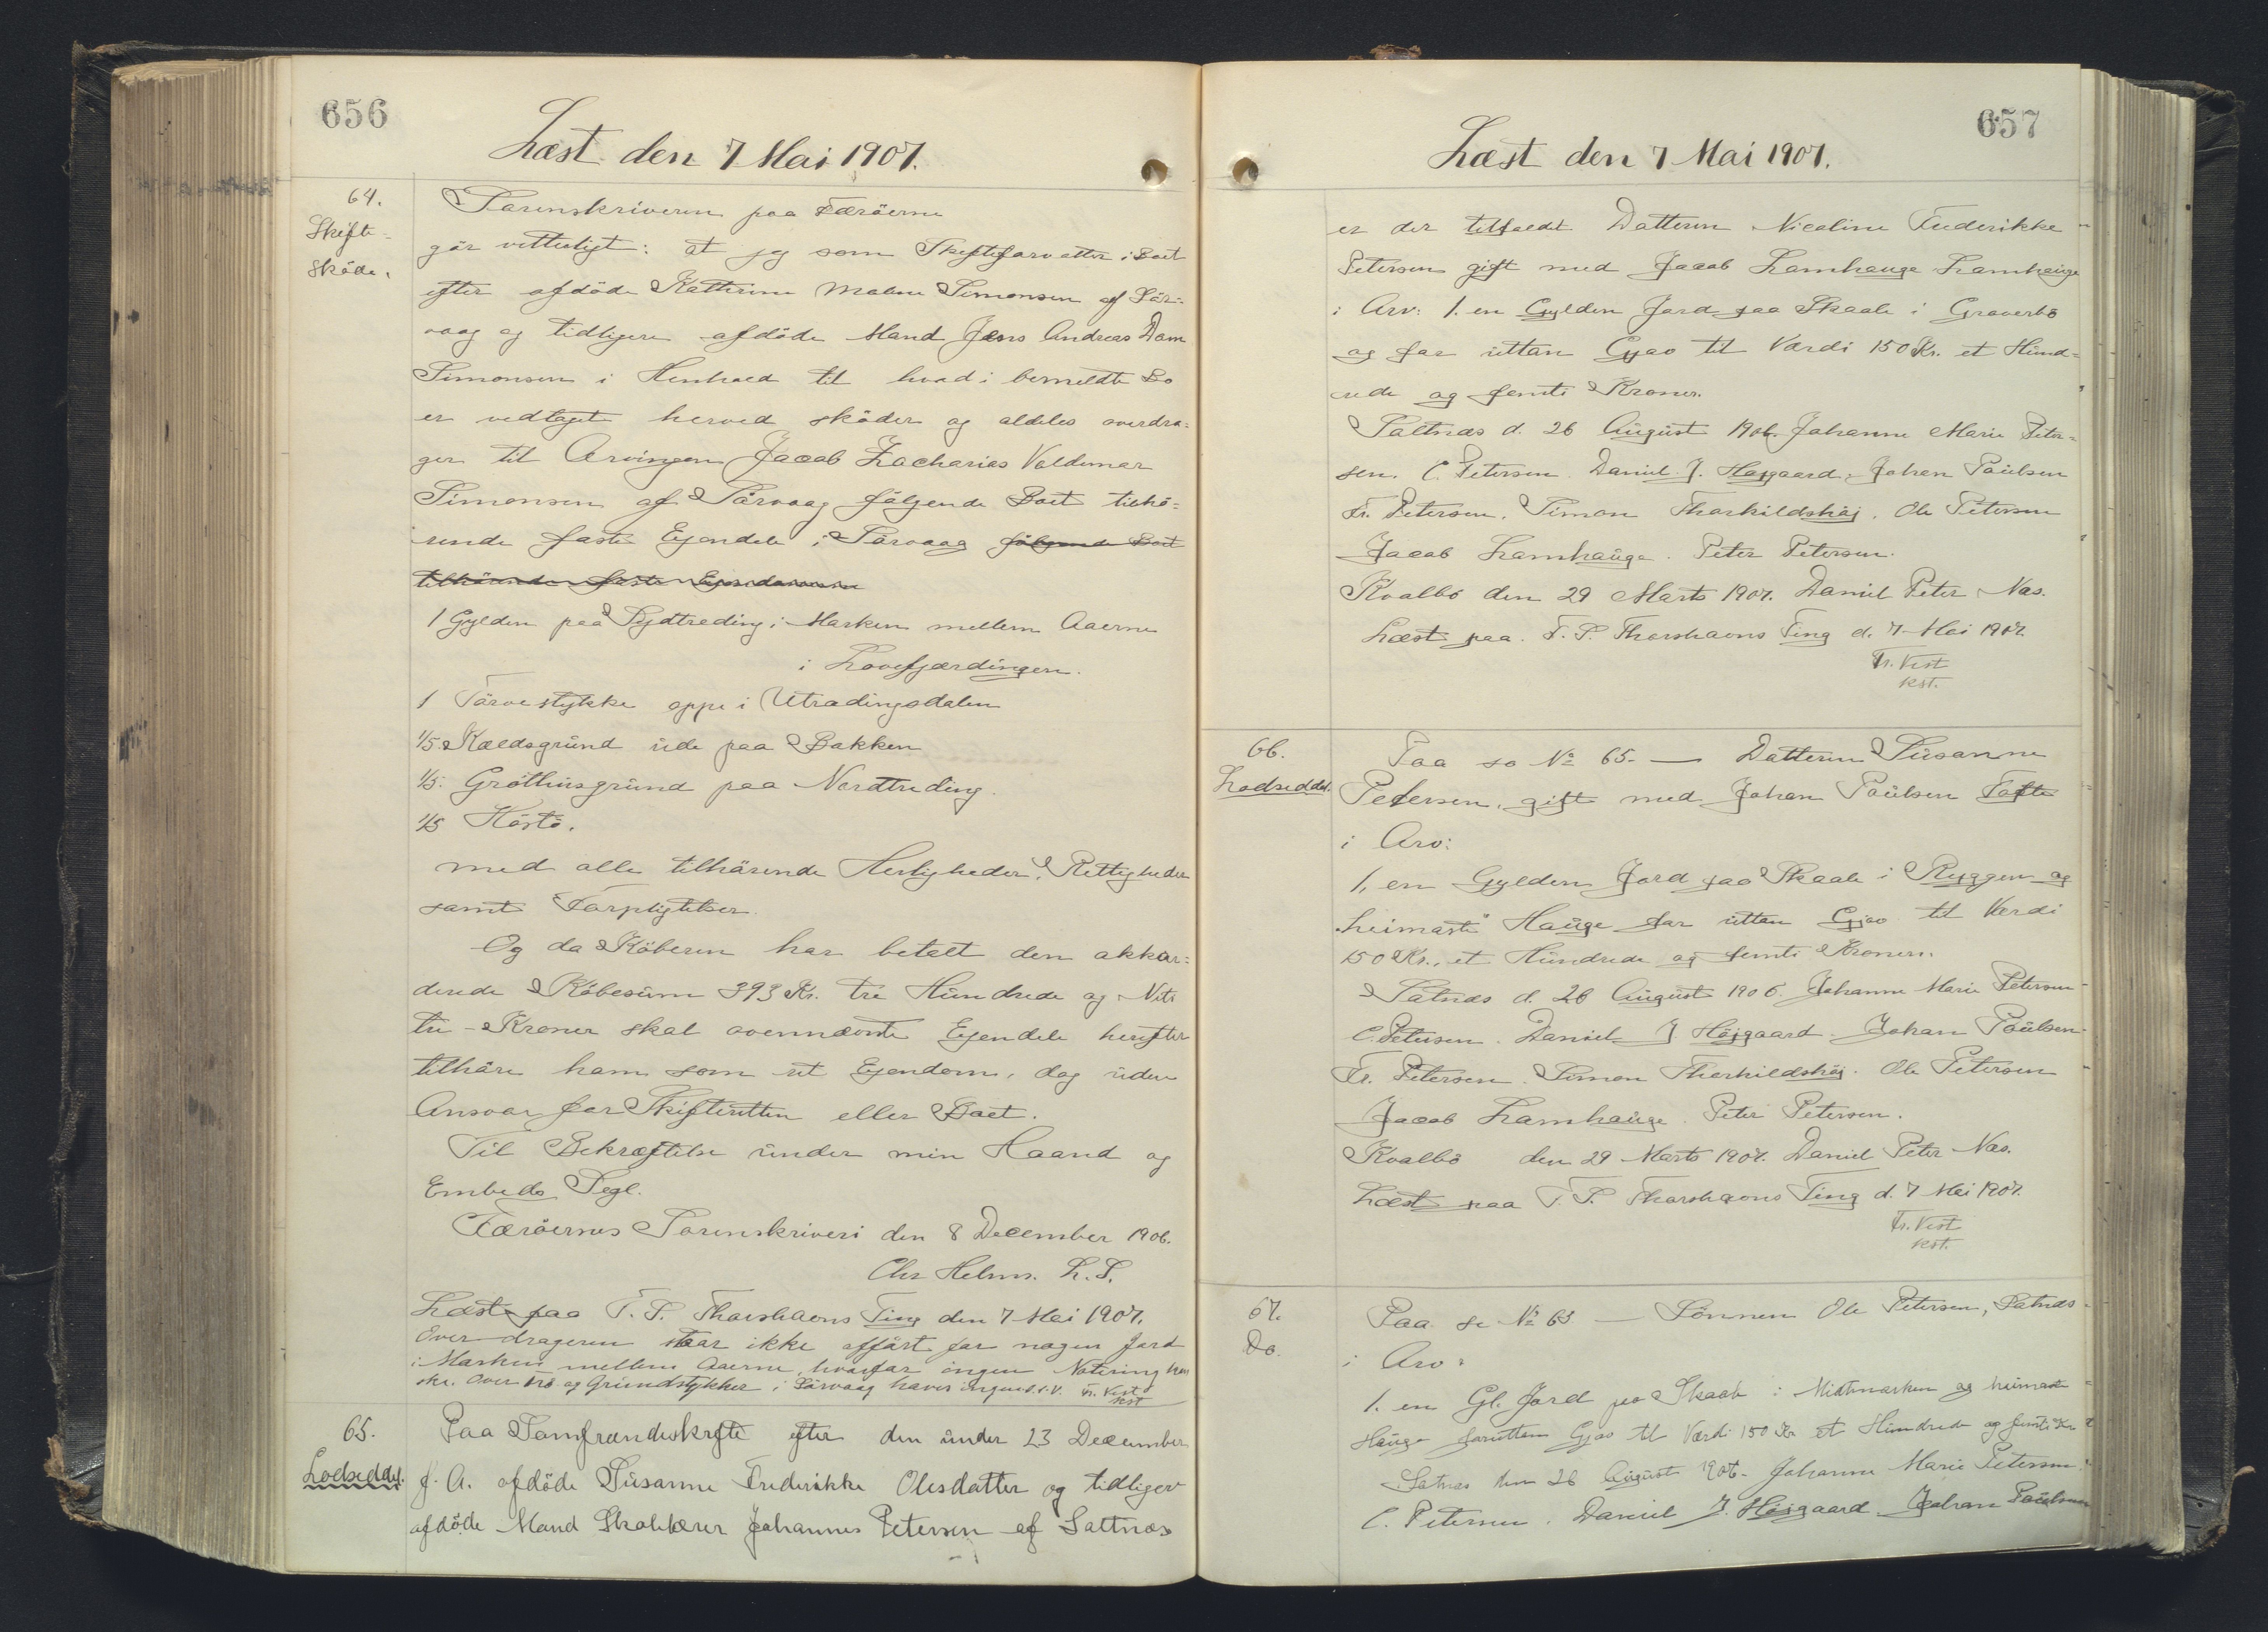 656
Læst den 7 Mai 1907.
64.
Skifte-
sköde.
Sorenskriveren paa Færöerne
gör vitterligt: at jeg som Skifteforvalter i Boet
efter afdöde Katterine Malene Simonsen af Sör-
vaag og tidligere afdöde Mand Jens Andreas Dam
Simonsen i Henhold til hvad i bemeldte Bo
er vedtaget herved sköder og aldeles overdra-
ger til Arvingen Jacob Zacharias Valdemar
Simonsen af Sörvaag fölgende Boet tilhö-
rende faste Ejendele i Sörvaag fölgende Boet
tilhörende faste Ejendomme
1 Gylden paa Sydtreding i Marken mellem Aaerne
i Lovefjærdingen.
1 Törvestykke oppe i Utradingsdalen
1/5. Kældsgrund ude paa Bakken
1/5. Gröthusgrund paa Nordtreding.
1/5 Köstö.
med alle tilhörende Herligheder, Rettigheder
samt Forpligtelser.
Og da Köberen har betalt den akkor-
derede Köbesum 393 Kr. tre Hundrede og Niti
tre Kroner skal ovennævnte Ejendele herefter
tilhöre ham som ret Ejendom, dog uden
Ansvar for Skifteretten eller Boet.
Til Bekræftelse under min Haand og
Embeds Segl.
Færöernes Sorenskriveri den 8 December 1906.
Chr Helms. L. S.
Læst paa T. S. Thorshavns Ting den 7 Mai 1907.
Overdrageren staar ikke opfört for nogen Jord
i Marken mellem Aaerne, hvorfor ingen Notering kan
ske. Over Hus og Grundstykker i Sörvaag haves ingen S. & V. Fr. Vest
kst
65.
Lodseddel.
Paa Samfrændeskifte efter den under 23 December
f. A. afdöde Susanne Frederikke Olesdatter og tidligere
afdöde Mand Skolelærer Johannes Petersen af Saltnæs
657
Læst den 7 Mai 1907.
er der tilfaldt Datteren Nicoline Frederikke
Petersen gift med Jacob Lamhauge Lamhauge
i Arv: 1. en Gylden Jord paa Skaale i Graverbö
og for uttan Gjao til Værdi 150 Kr. et Hund-
rede og femti Kroner.
Saltnæs d. 26 August 1906. Johanne Marie Peter-
sen. C. Petersen. Daniel J. Höjgaard. Johan Poulsen
Fr. Petersen. Simon Thorkildshöj. Ole Petersen
Jacob Lamhauge. Peter Petersen.
Kvalbö den 29 Marts 1907. Daniel Peter Næs.
Læst paa T. S. Thorshavns Ting d. 7 Mai 1907.
Fr. Vest
kst.
66.
Lodseddel.
Paa se No 65. — Datteren Susanne
Petersen, gift med Johan Poulsen Tofte
i Arv:
1, en Gylden Jord paa Skaale i Ryggen og
heimasti Hauge for uttan Gjao til Værdi
150 Kr., et Hundrede og femti Kroner.
Satnæs d. 26 August 1906. Johanne Marie Petersen
C. Petersen. Daniel J Höjgaard. Johan Poulsen
Fr. Petersen. Simon Thorkildshöj. Ole Petersen
Jacob Lamhauge. Peter Petersen.
Kvalbö den 29 Marts 1907. Daniel Peter Næs.
Læst paa T. S. Thorshavns Ting d. 7 Mai 1907.
Fr. Vest
kst.
67.
Do.
Paa se No 65 — Sönnen Ole Petersen, Satnæs
i Arv:
1. en Gl. Jord paa Skaale i Midtmarken og heimasti
Hauge foruttan Gjao til Værdi 150 Kr et Hundrede og femti Kr
Satnæs den 26 August 1906. Johanne Marie Petersen
C. Petersen. Daniel J. Höjgaard Johan Poulsen